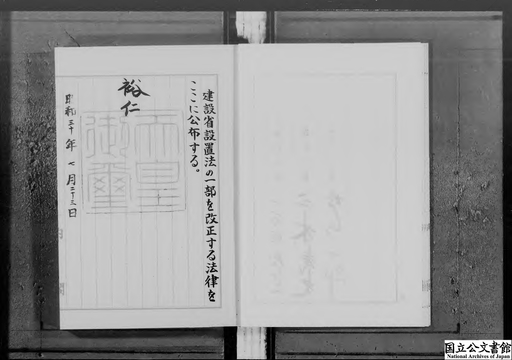 建設省設置法の一部を改正する法律を
ここに公布する。
裕仁
天皇
御璽
昭和三十年七月二十三日
国立公文書館
National Archives of Japan